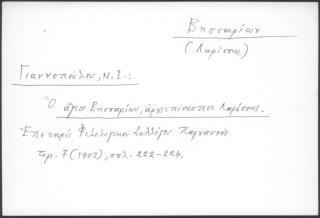 Βησσαρίων
(Λαρίσης)
Γιαννοπούλου, Ν. Ι.:
Ὁ ἅγιος Βησσαρίων, ἀρχιεπίσκοπος Λαρίσσης.
Ἐπετηρὶς Φιλολογικοῦ Συλλόγου Παρνασσός.
τομ. 7 (1903), σελ. 222-224.